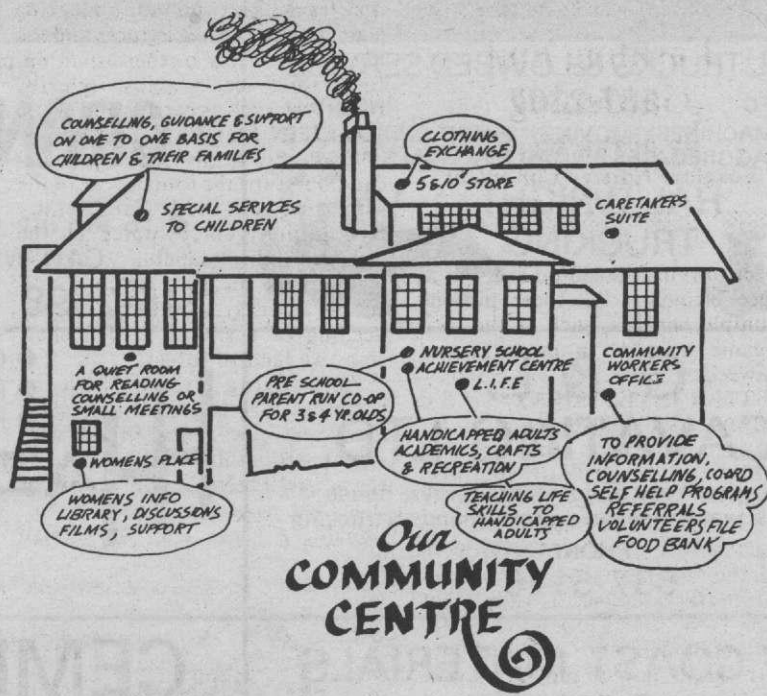 COUNSELLING, GUIDANCE & SUPPORT
ON ONE TO ONE BASIS FOR
CHILDREN & THEIR FAMILIES
SPECIAL SERVICES
TO CHILDREN
CLOTHING
EXCHANGE
5&10¢ STORE
CARETAKERS
SUITE
A QUIET ROOM
FOR READING
COUNSELLING OR
SMALL MEETINGS
WOMENS PLACE
WOMENS INFO
LIBRARY, DISCUSSIONS
FILMS, SUPPORT
PRE SCHOOL
PARENT RUN CO-OP
FOR 3&4 YR. OLDS
NURSERY SCHOOL
ACHIEVEMENT CENTRE
L.I.F.E
HANDICAPPED ADULTS
ACADEMICS, CRAFTS
& RECREATION
TEACHING LIFE
SKILLS TO
HANDICAPPED
ADULTS
COMMUNITY
WORKERS
OFFICE
TO PROVIDE
INFORMATION,
COUNSELLING, CO-ORD
SELF HELP PROGRAMS
REFERRALS
VOLUNTEERS FILE
FOOD BANK
Our
COMMUNITY
CENTRE